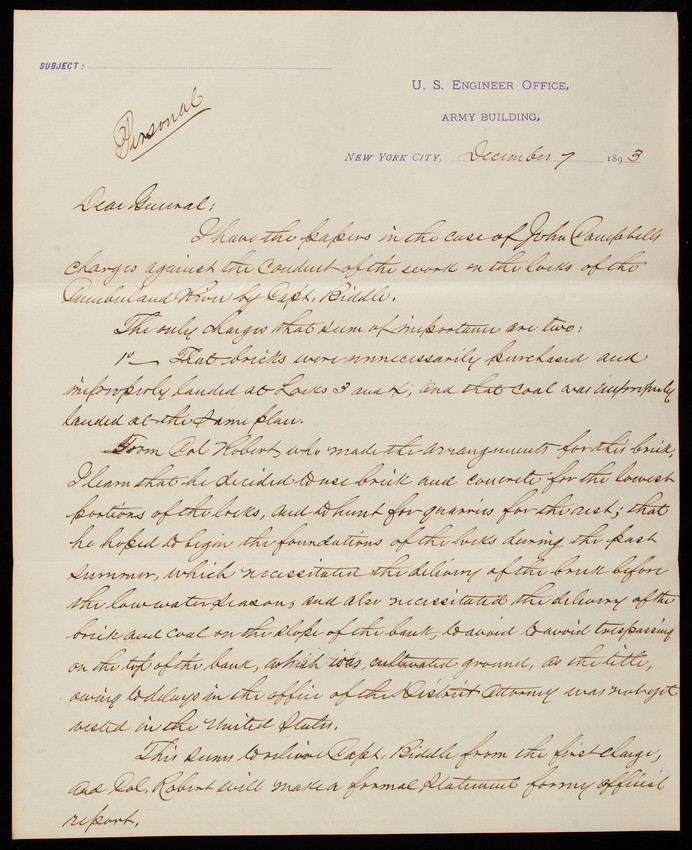 SUBJECT:
Personal
U. S. ENGINEER OFFICE,
ARMY BUILDING,
NEW YORK CITY, December 7 1893
Dear General:
I have the papers in the case of John Campbell's
charges against the conduct of the work on the locks of the
Cumberland River by Capt. Biddle.
The only charges that seem of importance are two:
1o— That bricks were unnecessarily purchased and
improperly landed at Locks 3 and 4, and that coal was improperly
landed at the same place.
From Col Robert, who made the arrangements for this brick,
I learn that he decided to use brick and concrete for the lowest
portions of the locks, and to hunt for quarries for the rest; that
he hoped to begin the foundations of the locks during the past
summer, which necessitated the delivery of the brick before
the low water season, and also necessitated the delivery of the
brick and coal on the slope of the bank, to avoid to avoid trespassing
on the top of the bank, which was cultivated ground, as the title,
owing to delays in the office of the District Attorney was not yet
vested in the United States.
This seems to relieve Capt. Biddle from the first charge,
and Col. Robert will make a formal statement for my official
report.